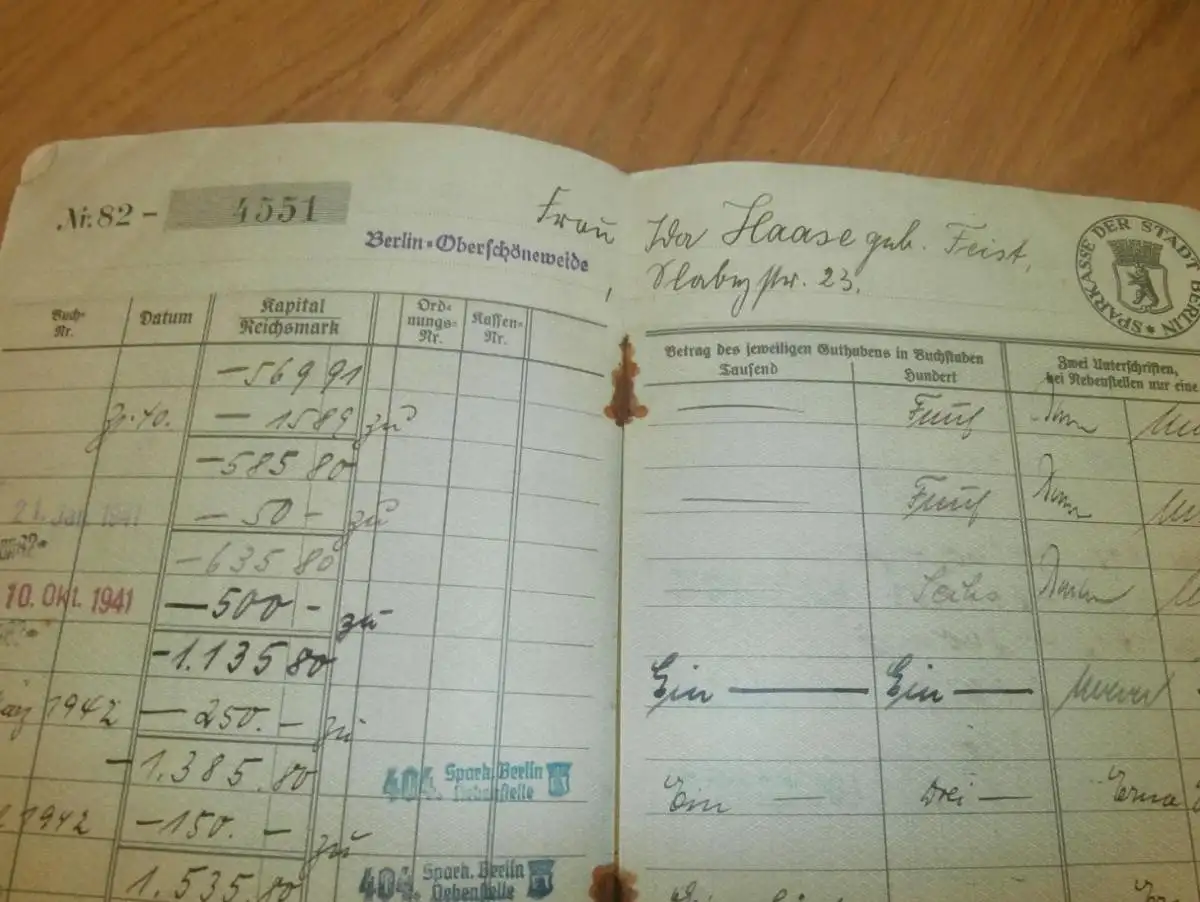 Nr. 82 - 4551
Berlin-Oberschöneweide
Buch-Nr.
Datum
Kapital
Reichsmark
Ord-nungs-Nr.
Kassen-Nr.
-569 91
-1589 zu
-585 80
21. Jan. 1941
-50- zu
-635 80
10. Okt. 1941
-500- zu
-1.135 80
1942 -250.- zu
-1.385.80
404 Spark. Berlin
Nebenstelle
1942 -150.- zu
1.535.80
404 Spark. Berlin
Nebenstelle
Frau Ida Haase geb. Feist,
Slabystr. 23.
SPARKASSE DER STADT BERLIN
Betrag des jeweiligen Guthabens in Buchstaben
Tausend
Hundert
Zwei Unterschriften,
bei Nebenstellen nur eine
Fünf
Fünf
Sechs
Ein Ein
Ein Drei